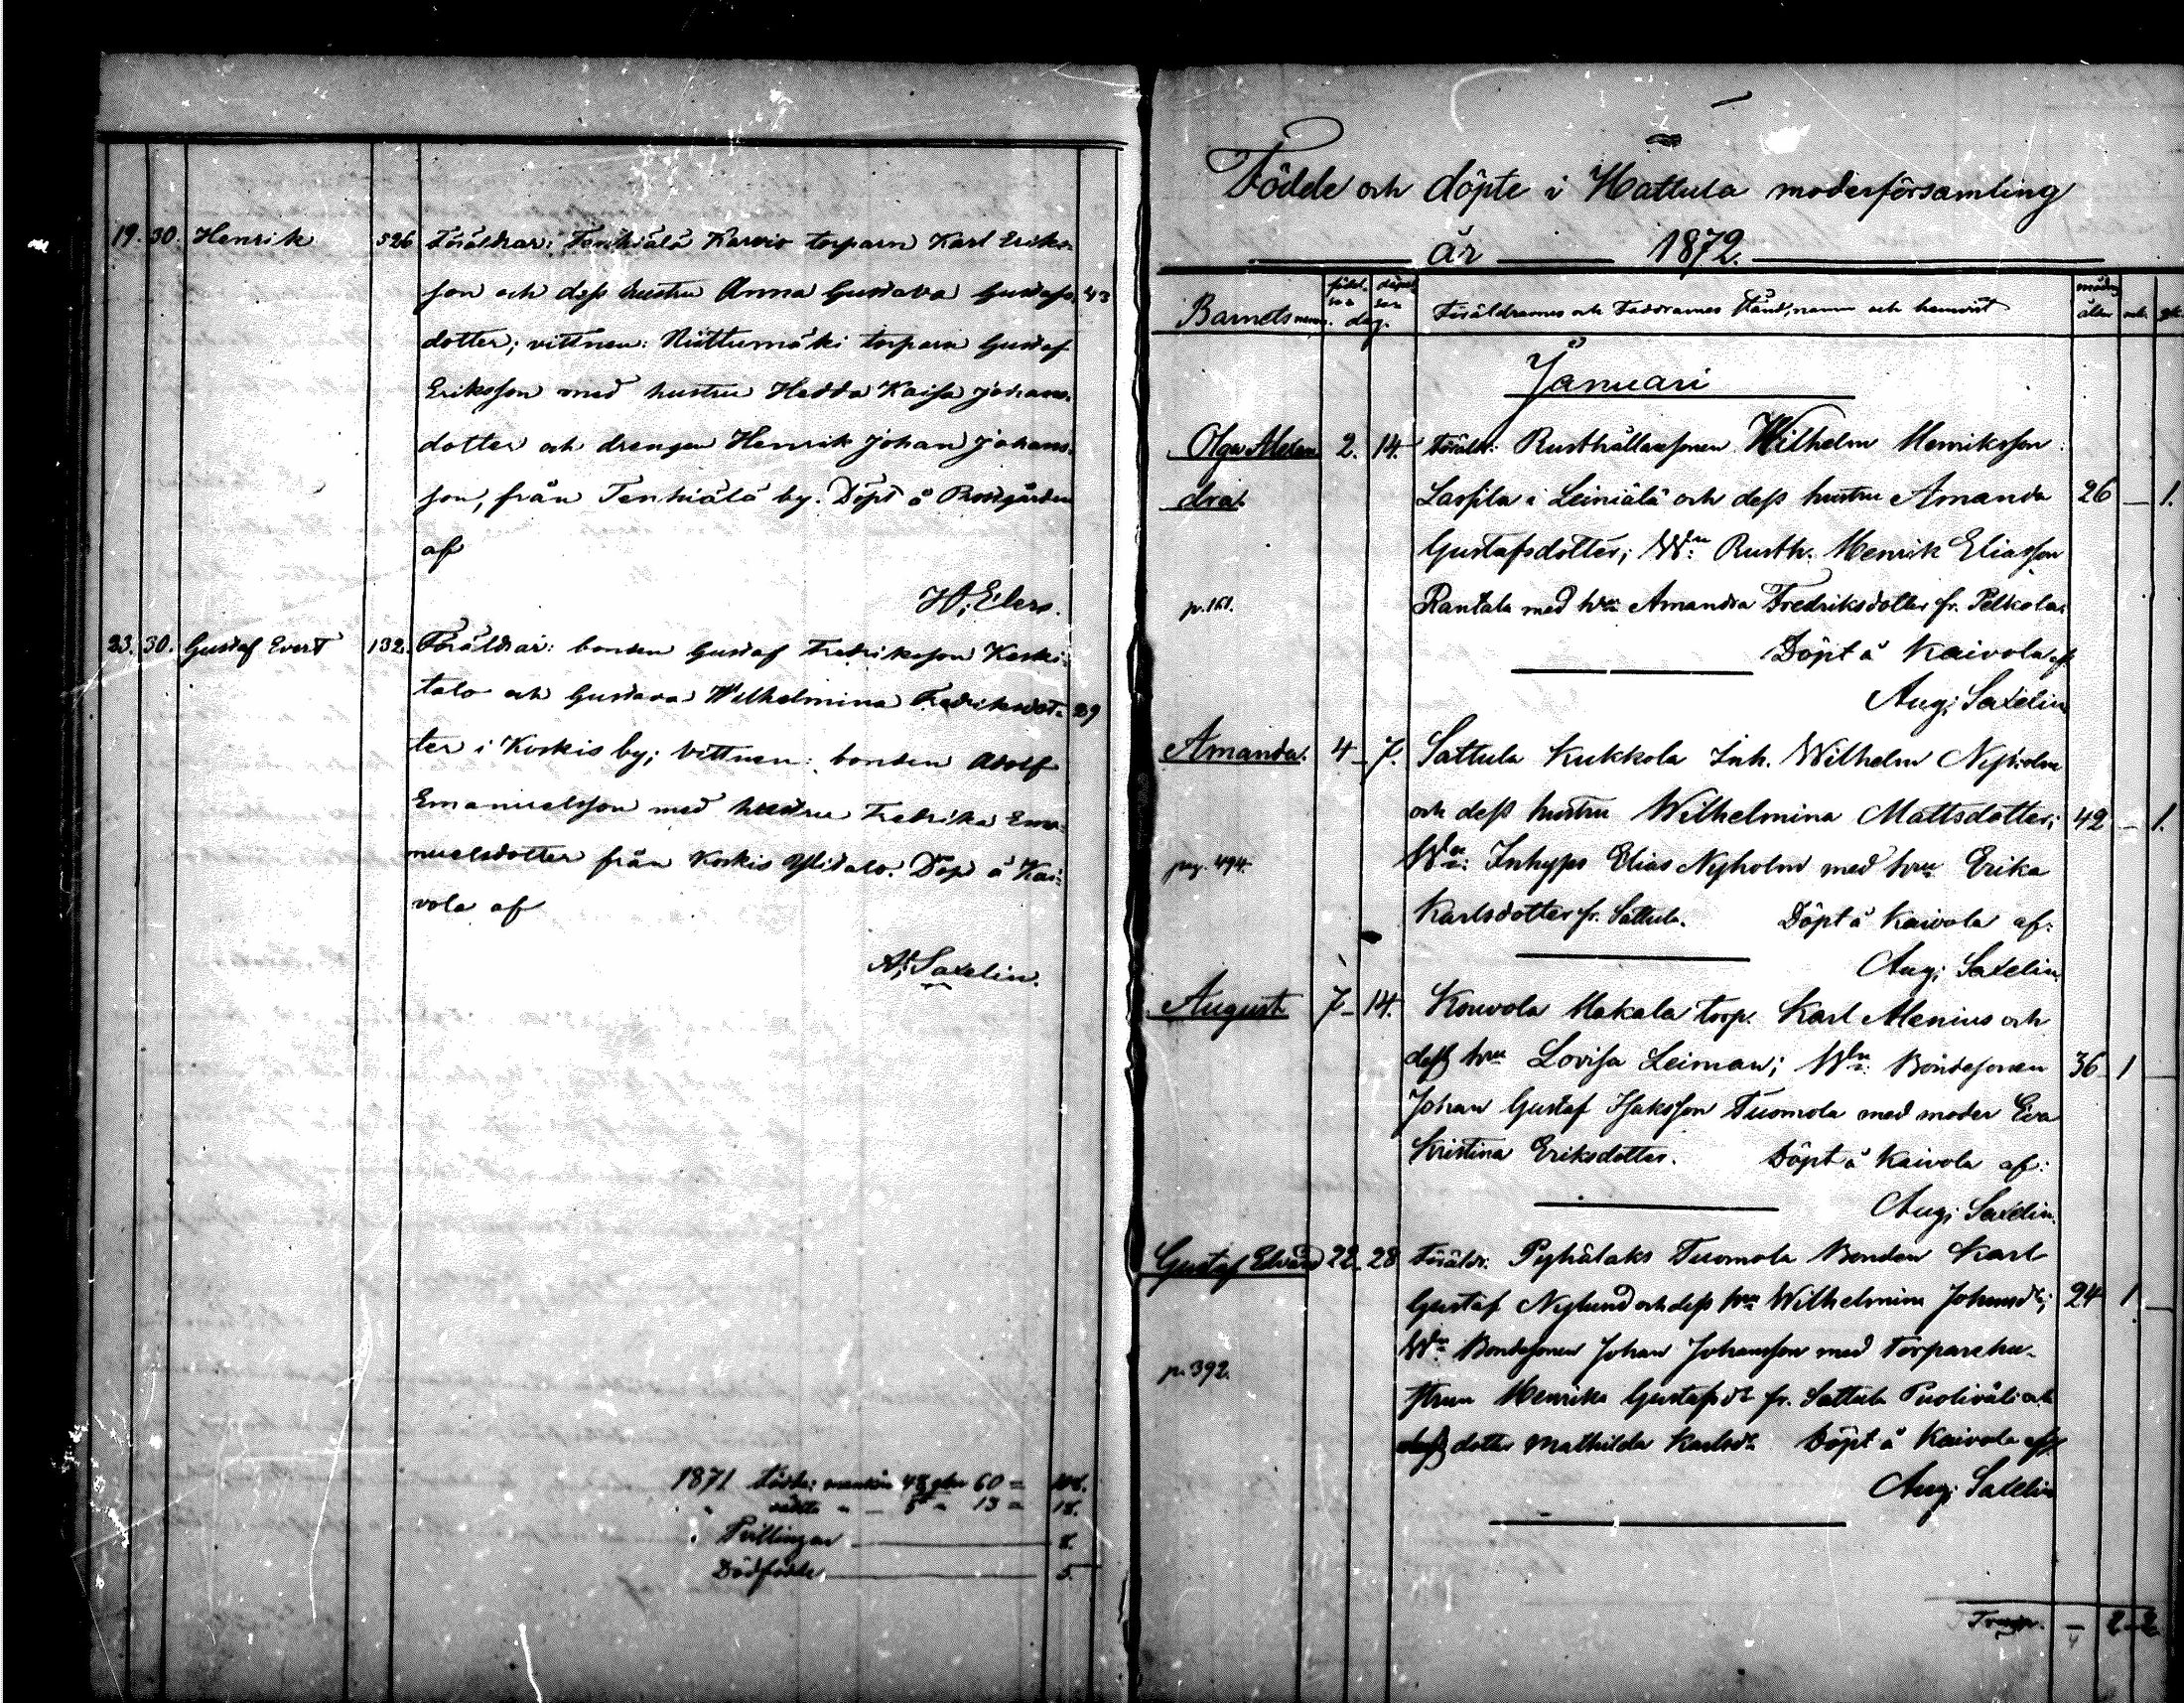 19. 30. Henrik 526 Föräldrar: Tenhiälä Karvio torparn Karl Eriks-
son och dess hustru Anna Gustava Gustafs- 43
dotter; vittnen: Niittumäki torparn Gustaf
Eriksson med hustru Hedda Kaisa Johans-
dotter och drengen Henrik Johan Johans-
son, från Tenhiälä by. Döpt å Prostgården
af
H; Elers.
23. 30. Gustaf Evert 132. Föräldrar: bonden Gustaf Fredriksson Keski-
talo och Gustava Wilhelmina Fredriksdot- 29
ter i Koskis by; Vittnen: bonden Adolf
Emanuelsson med hustru Fredrika Ema-
nuelsdotter från Koskis Ylitalo. Döpt å Kai-
vola af
A; Saxelin.
1871 födde: mankön 48 qkön 60 = 108.
5 13 = 18.
Tvillingar 8.
Dödfödde 5.
Födde och döpte i Hattula moderförsamling
år 1872.
Barnets namn. födel- se döpel- se- dag. Föräldrarnes och Faddrarnes stånd, namn och hemvist moders ålder mk qk
Januari
Olga Alexan 2. 14. Föräldr: Rusthållaresonen Wilhelm Henriksson
dra. Lassila i Leiniälä och dess hustru Amanda 26 1.
Gustafsdotter; W:n Rusth. Henrik Eliasson
p. 161. Rantala med h:u Amanda Fredriksdotter fr. Pelkola.
Döpt å Kaivola af
Aug; Saxelin
Amanda. 4 7. Sattula Kukkola Inh. Wilhelm Nyholm
och dess hustru Wilhelmina Mattsdotter; 42 1.
pag. 494. W:n Inhyses Elias Nyholm med h:u Erika
Karlsdotter fr. Sattula. Döpt å Kaivola af:
Aug; Saxelin
August 7 14. Kouvola Makala torp. Karl Alenius och
dess h:u Lovisa Leiman; W:n Bondesonen 36 1
Johan Gustaf Isaksson Tuomola med moder Eva
Kristina Eriksdotter. Döpt å Kaivola af:
Aug; Saxelin.
Gustaf Edvard 22 28 Föräldr. Pyhälaks Tuomola Bonden Karl
Gustaf Nylund och dess h:u Wilhelmina Johansd:r; 24 1
W:n Bondesonen Johan Johansson med torparehu-
p. 392. strun Henrika Gustafsd:r fr. Sattula Puoliväli och
dess dotter Mathilda Karlsd:r Döpt å Kaivola af
Aug; Saxelin
Transp. 4 2 2